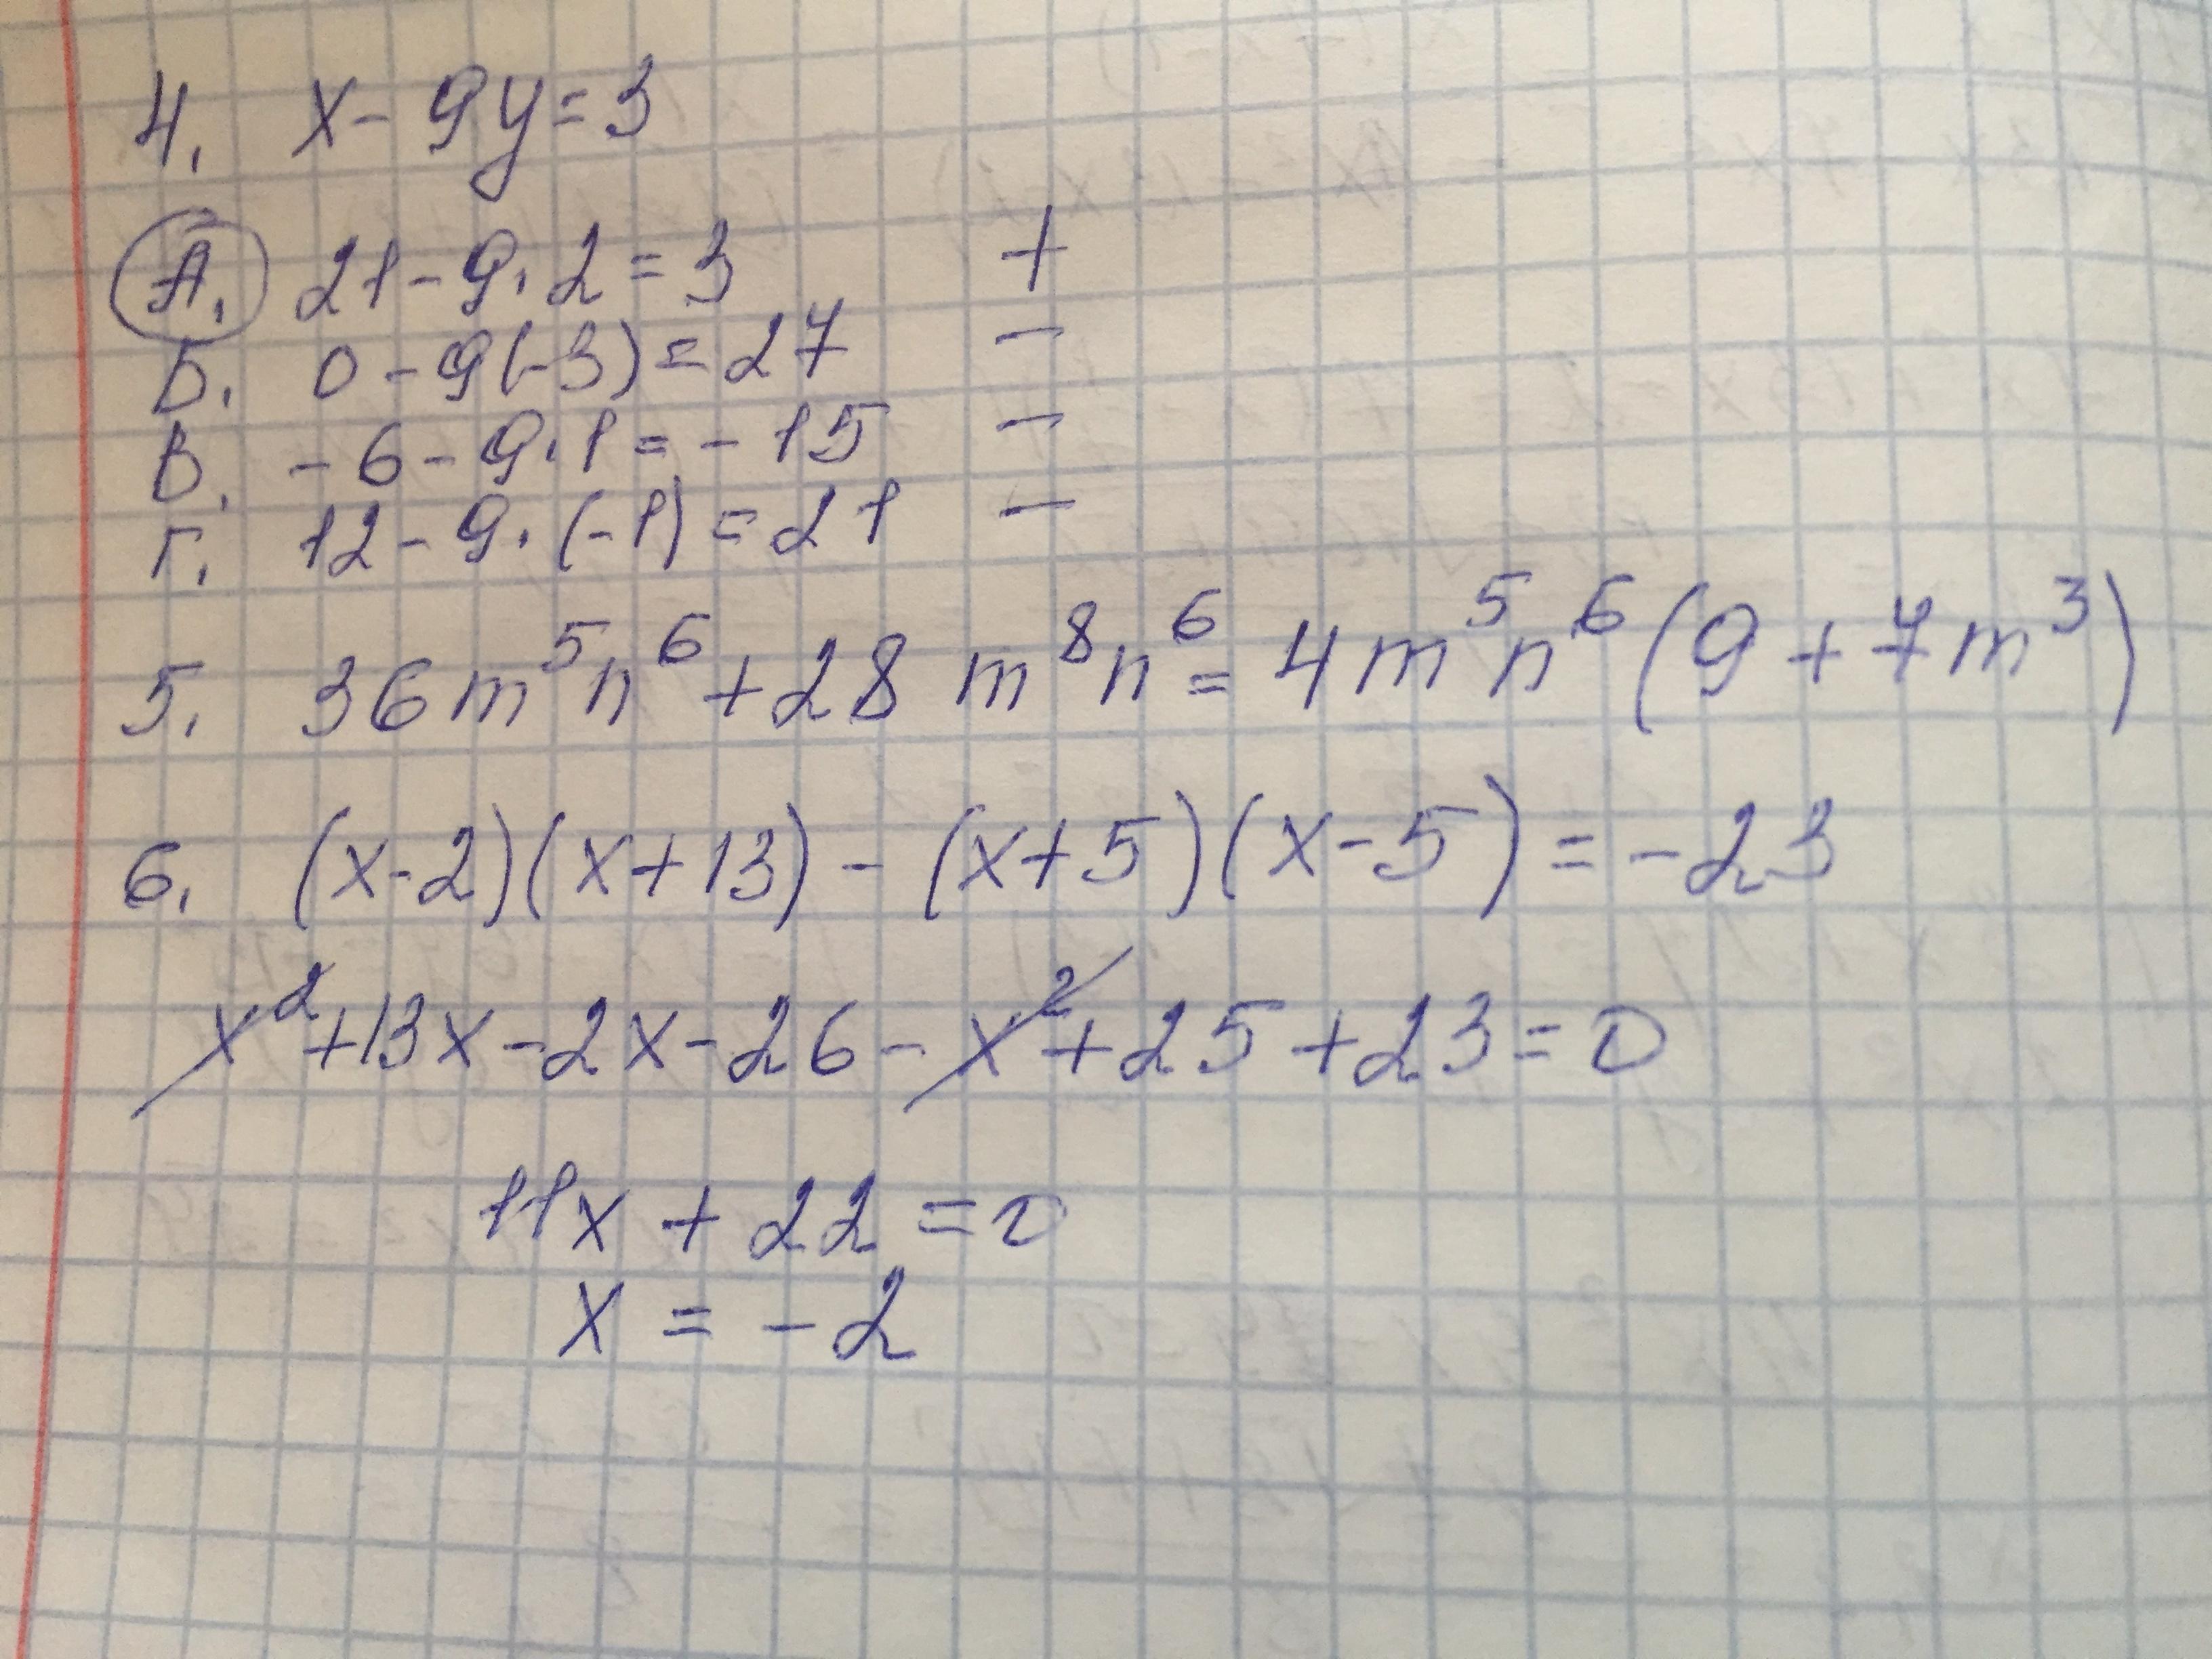 4. x - 9y = 3
А. 21 - 9 · 2 = 3 +
Б. 0 - 9(-3) = 27 -
В. -6 - 9 · 1 = -15 -
Г. 12 - 9 · (-1) = 21 -
5. 36m⁵n⁶ + 28 m⁸n⁶ = 4m⁵n⁶(9 + 7m³)
6. (x-2)(x+13) - (x+5)(x-5) = -23
x² + 13x - 2x - 26 - x² + 25 + 23 = 0
11x + 22 = 0
x = -2